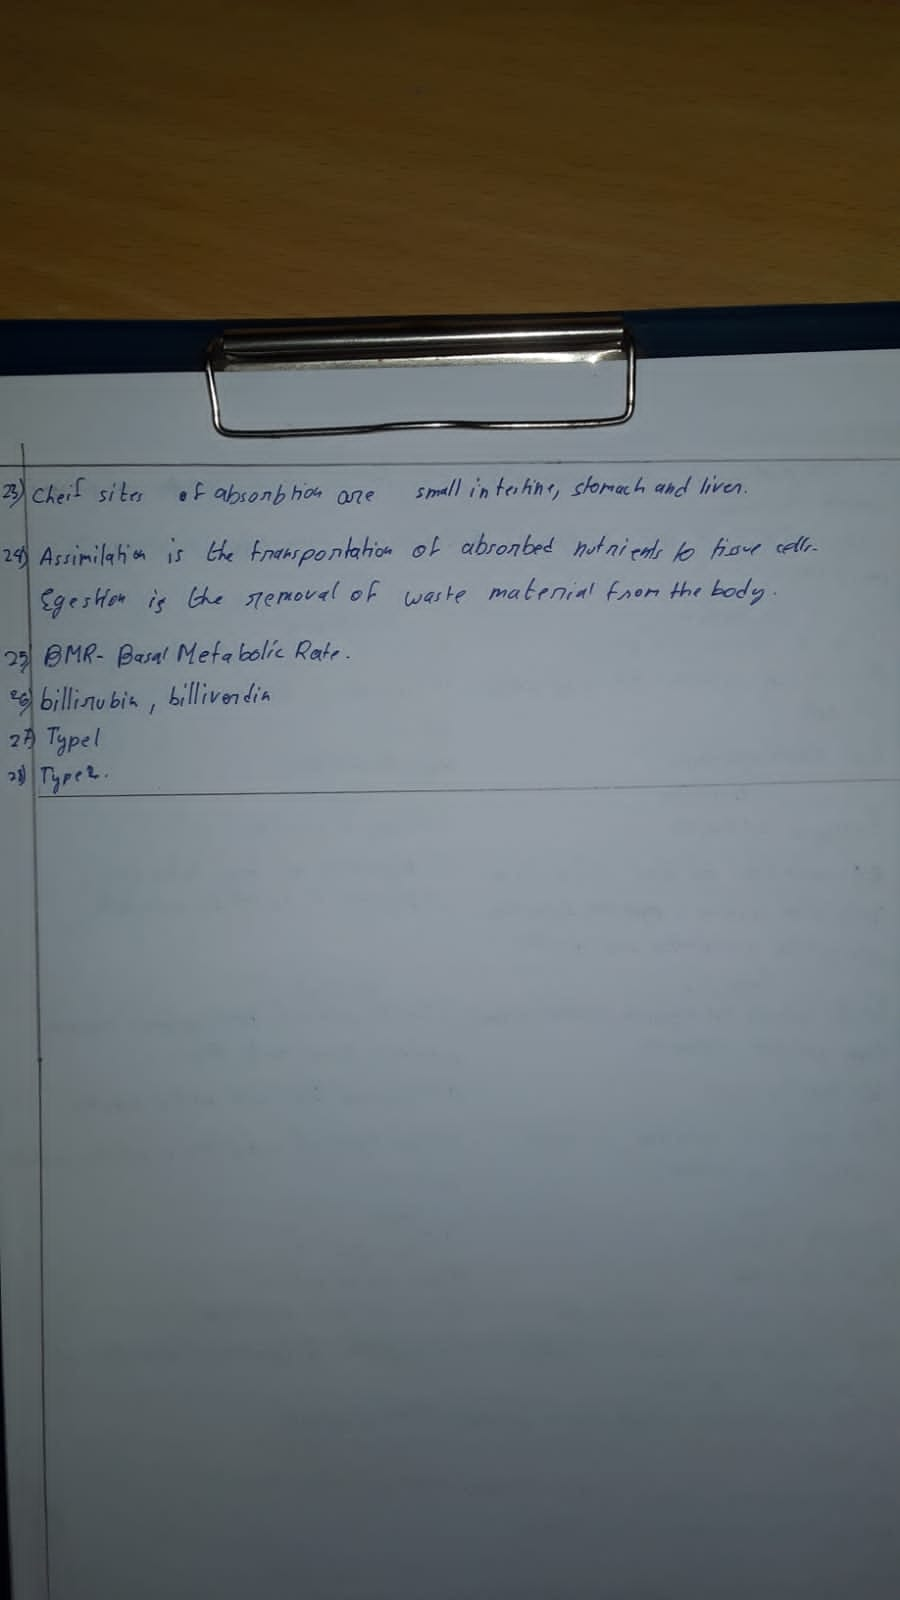 23) Cheif sites of absorbtion are small intestine, stomach and liver.
24) Assimilation is the transportation of absorbed nutrients to tissue cells.
Egestion is the removal of waste material from the body.
25) BMR- Basal Metabolic Rate.
26) billirubin, billiverdin
27) Type1
28) Type2.